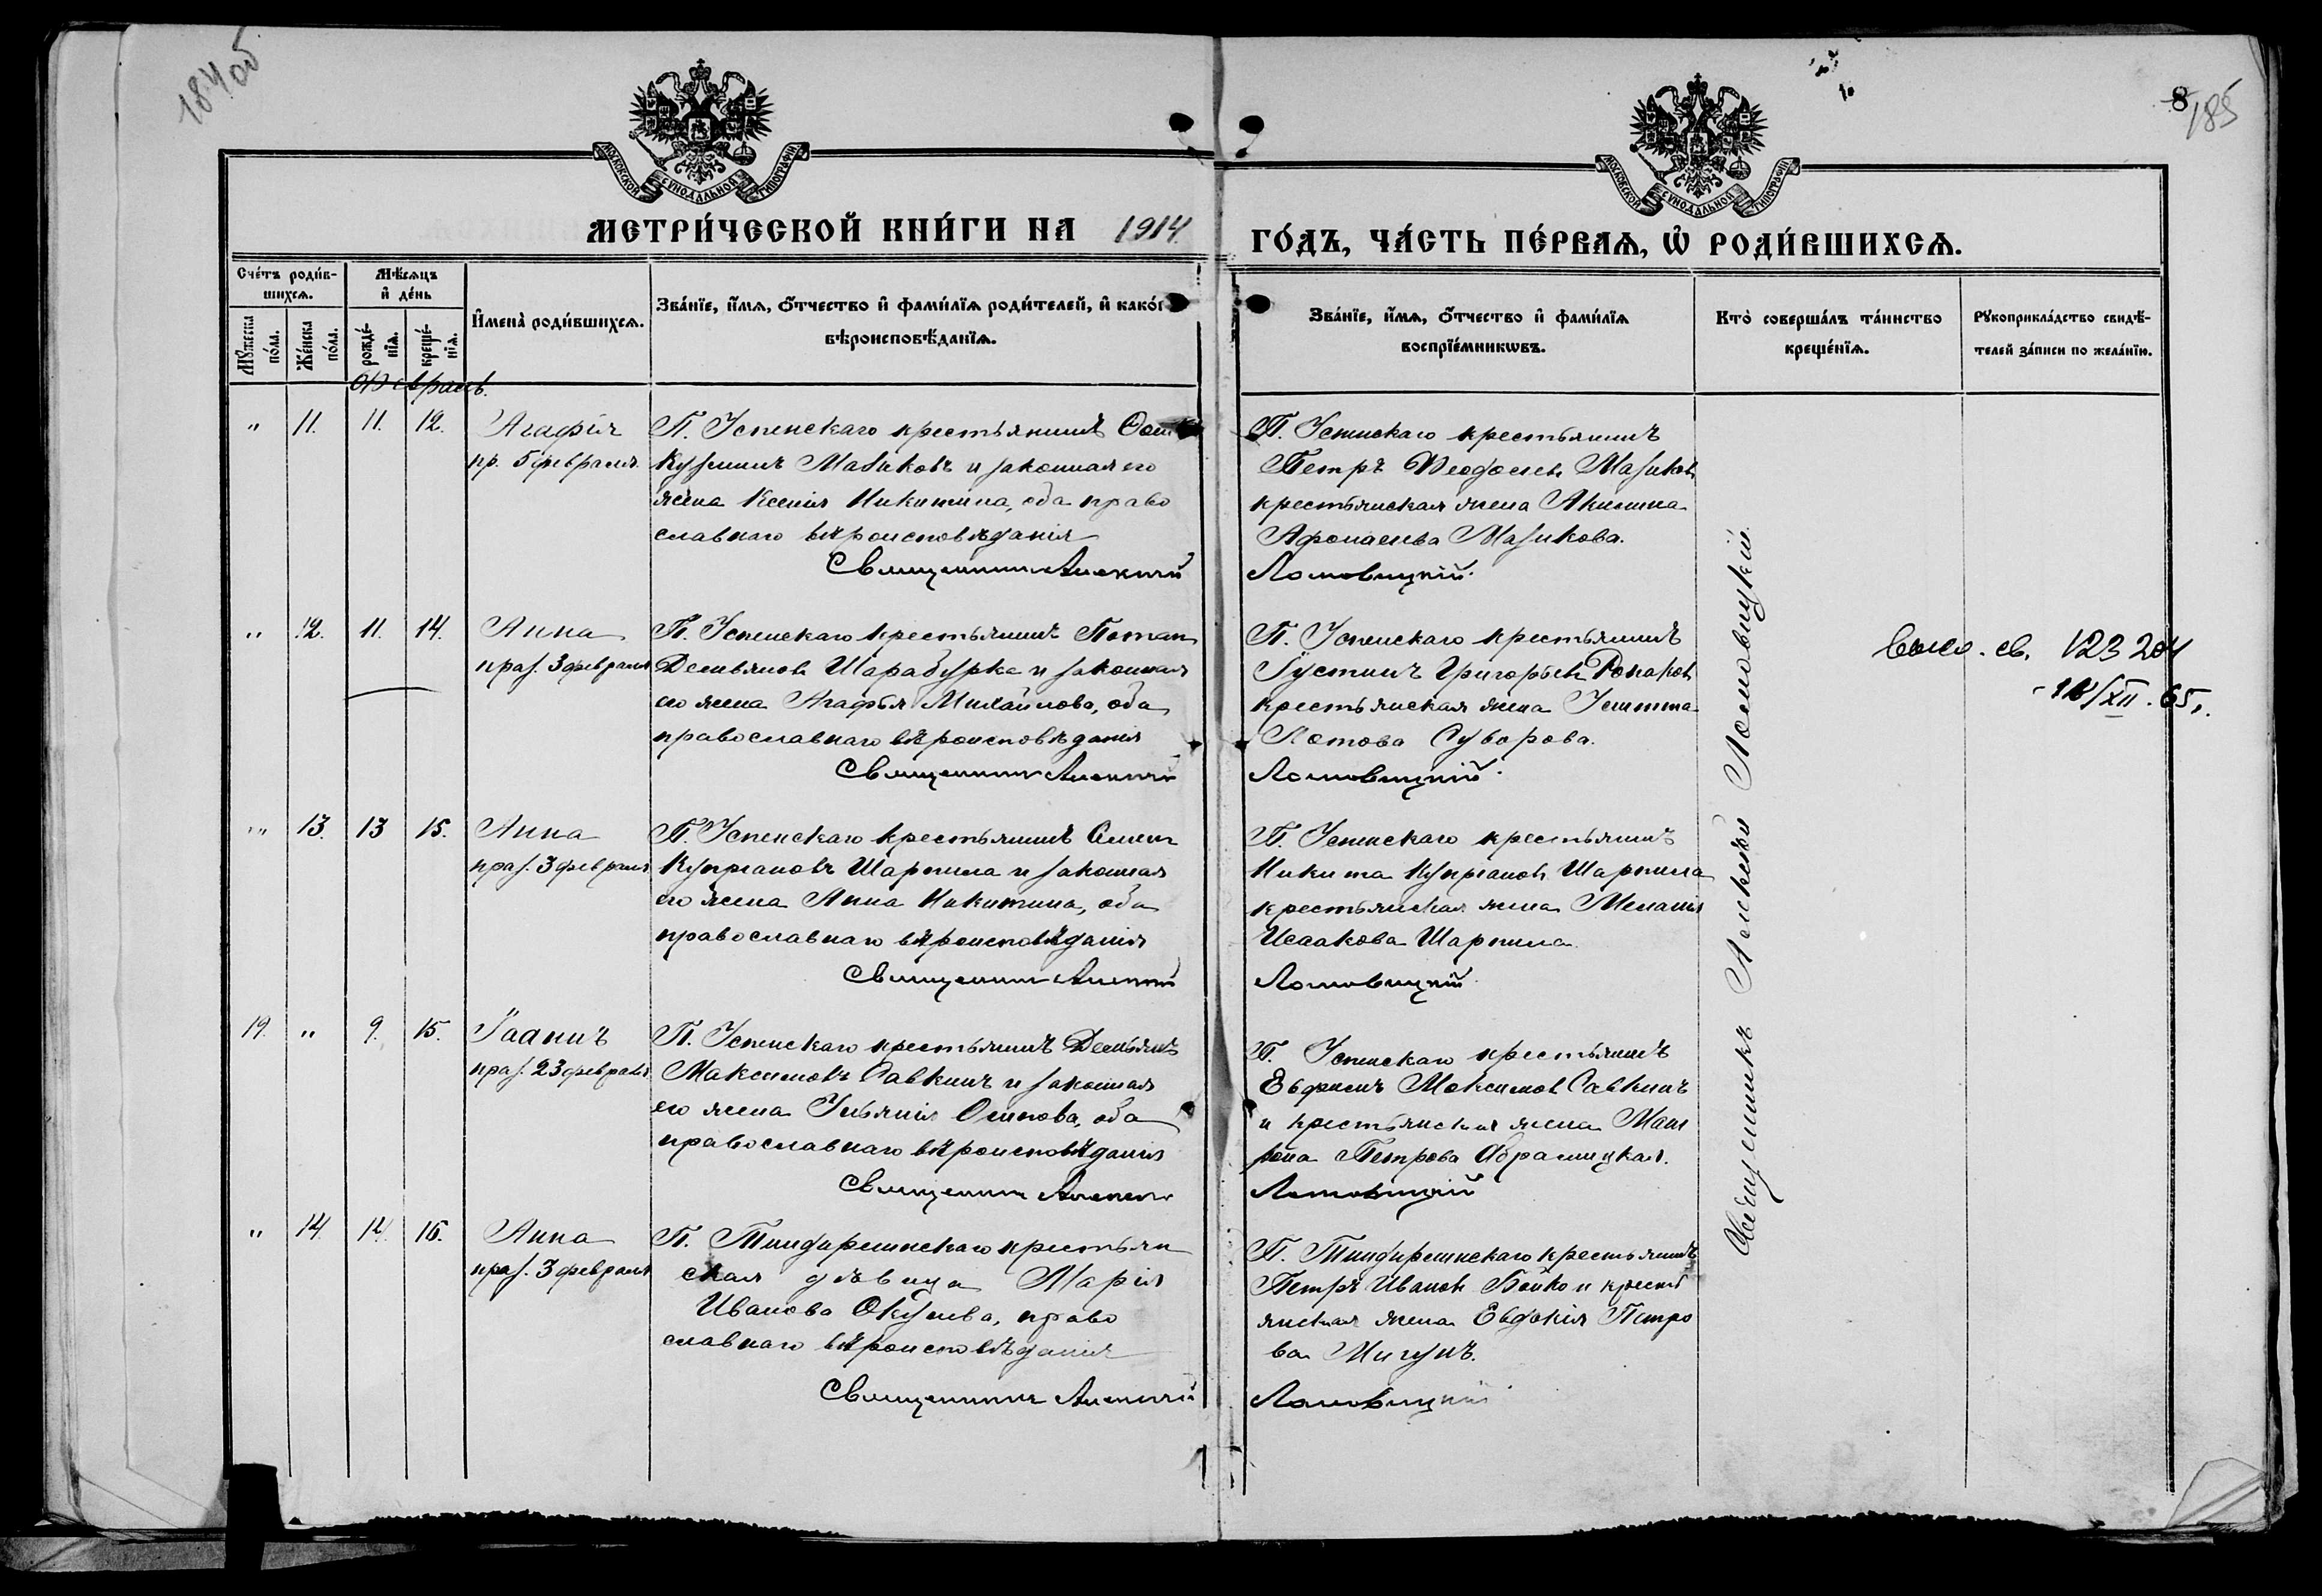 184об
8
185
МОСКОВСКОЙ СУНОДАЛЬНОЙ ТИПОГРАФІИ
МОСКОВСКОЙ СУНОДАЛЬНОЙ ТИПОГРАФІИ
МЕТРИ́ЧЕСКОЙ КНИ́ГИ НА 1914.
ГО́ДЪ, ЧА́СТЬ ПЕ́РВАѦ, Ѡ РОДИ́ВШИХСѦ.
Сче́тъ роди́в-
шихсѧ.
Мꙋ́жеска по́ла.
Же́нска по́ла.
Мѣ́сѧцъ
и де́нь
рожде́-
нїѧ.
креще́-
нїѧ.
И҆мена̀ роди́вшихсѧ.
Зва́нїе, и҆́мѧ, ѻ҆́тчество и҆ фами́лїѧ роди́телей, и҆ како́г
вѣроисповѣ́данїѧ.
Зва́нїе, и҆́мѧ, ѻ҆́тчество и҆ фами́лїѧ
воспрїе́мникѡвъ.
Кто̀ соверша́лъ та́инство
креще́нїѧ.
Рꙋкоприкла́дство свидѣ́-
телей за́писи по жела́нїю.
Февраль.
" 11. 11. 12. Агафія
пр. 5 февраля.
П. Успенскаго крестьянинъ
Кузминъ Мазиковъ и законная его
жена Ксенія Никитина, оба право
славнаго вѣроисповѣданія
Священникъ Алексій
П. Успенскаго крестьянинъ
Петръ Феодосіевъ Мазиковъ
крестьянская жена Акилина
Афонасьева Мазикова.
Ломовицкій.
" 12. 11. 14. Анна
праз. 3 февраля
П. Успенскаго крестьянинъ Потап
Демьяновъ Шарабурка и законная
его жена Агафья Михайлова, оба
православнаго вѣроисповѣданія
Священникъ Алексій
П. Успенскаго крестьянинъ
Іустинъ Григорьевъ
крестьянская жена
Суворова.
Ломовицкій.
св. 123 204
/XII. 65г.
" 13. 13 15. Анна
праз. 3 февраля
П. Успенскаго крестьянинъ Семен
Купріановъ Шарпила и законная
его жена Анна Никитина, оба
православнаго вѣроисповѣданія
Священникъ Алексій
П. Успенскаго крестьянинъ
Никита Купріановъ Шарпила
крестьянская жена Меланія
Исаакова Шарпила.
Ломовицкій.
19. " 9. 15. Іоаннъ
праз. 23 февраля.
П. Успенскаго крестьянинъ Демьянъ
Максимовъ Савкинъ и законная
его жена Ульянія Осипова, оба
православнаго вѣроисповѣданія
Священникъ Алексій
П. Успенскаго крестьянинъ
Евфимъ Максимовъ Савкинъ
и крестьянская жена Мат
рона Петрова Абрамицкая.
Ломовицкій
" 14. 14. 16. Анна
праз. 3 февраля
П. Тимдирешнскаго крестьян
ская дѣвица Марія
Иванова Окунева, право
славнаго вѣроисповѣданія
Священникъ Алексій
П. Тимдирешнскаго крестьянинъ
Петръ Ивановъ Бойко и кресть
янская жена Евдокія Петро
ва Мигунъ.
Ломовицкій
Священникъ Алексѣй Ломовицкій.